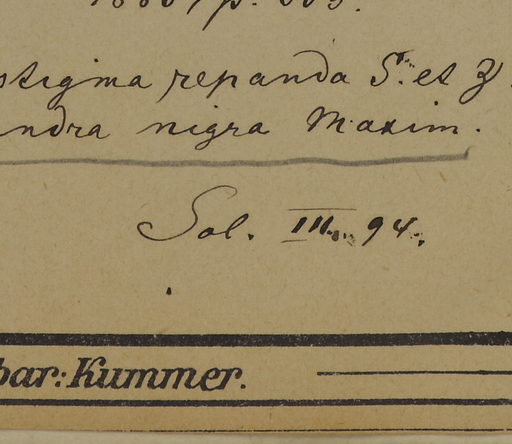 1886, p. 603.
stigma repanda S. et Z.
ndra nigra Maxim.
Sol. III. 94.
bar: Kummer.